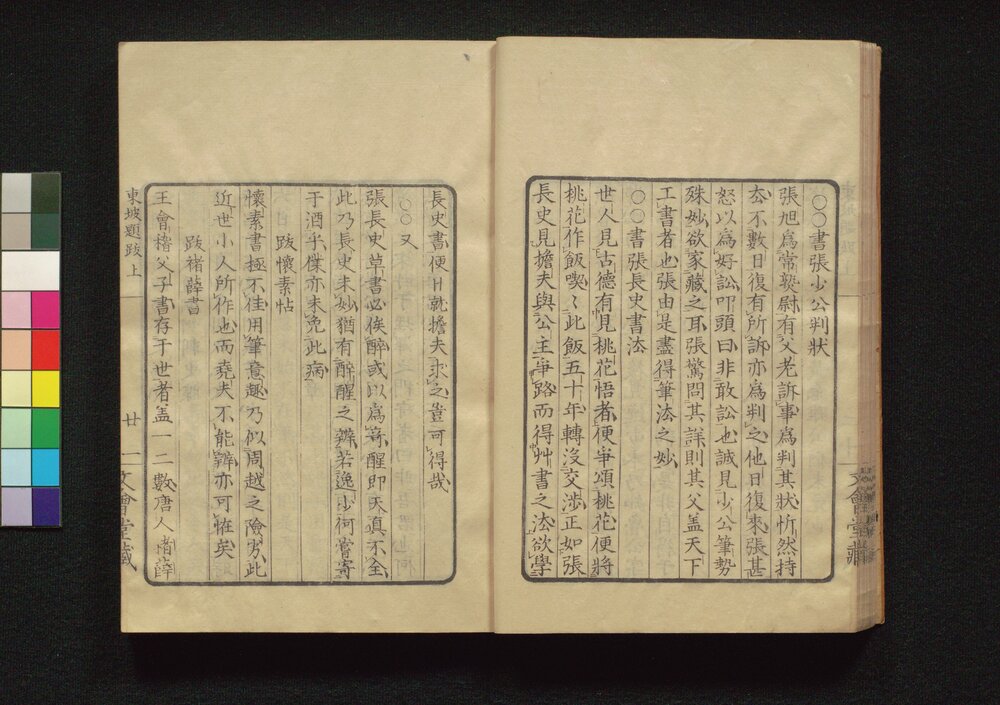 ○○書張少公判狀
張旭爲常熟尉有父老訴事爲判其狀忻然持
去不數日復有所訴亦爲判之他日復來張甚
怒以爲好訟叩頭曰非敢訟也誠見少公筆勢
殊妙欲家藏之耳張驚問其詳則其父盖天下
工書者也張由是盡得筆法之妙
○○書張長史書法
世人見古德有見桃花悟者便爭頌桃花便將
桃花作飯喫〻此飯五十年轉沒交涉正如張
長史見擔夫與公主爭路而得艸書之法欲學
長史書便日就擔夫求之豈可得哉
○○又
張長史草書必俟醉或以爲奇醒即天真不全
此乃長史未妙猶有醉醒之辨若逸少何嘗寄
于酒乎僕亦未免此病
跋懷素帖
懷素書極不佳用筆意趣乃似周越之險劣此
近世小人所作也而堯夫不能辨亦可怪矣
跋褚薛書
王會稽父子書存于世者盖一二數唐人褚薛
東坡題跋上
廿一
文會堂藏
文會堂藏